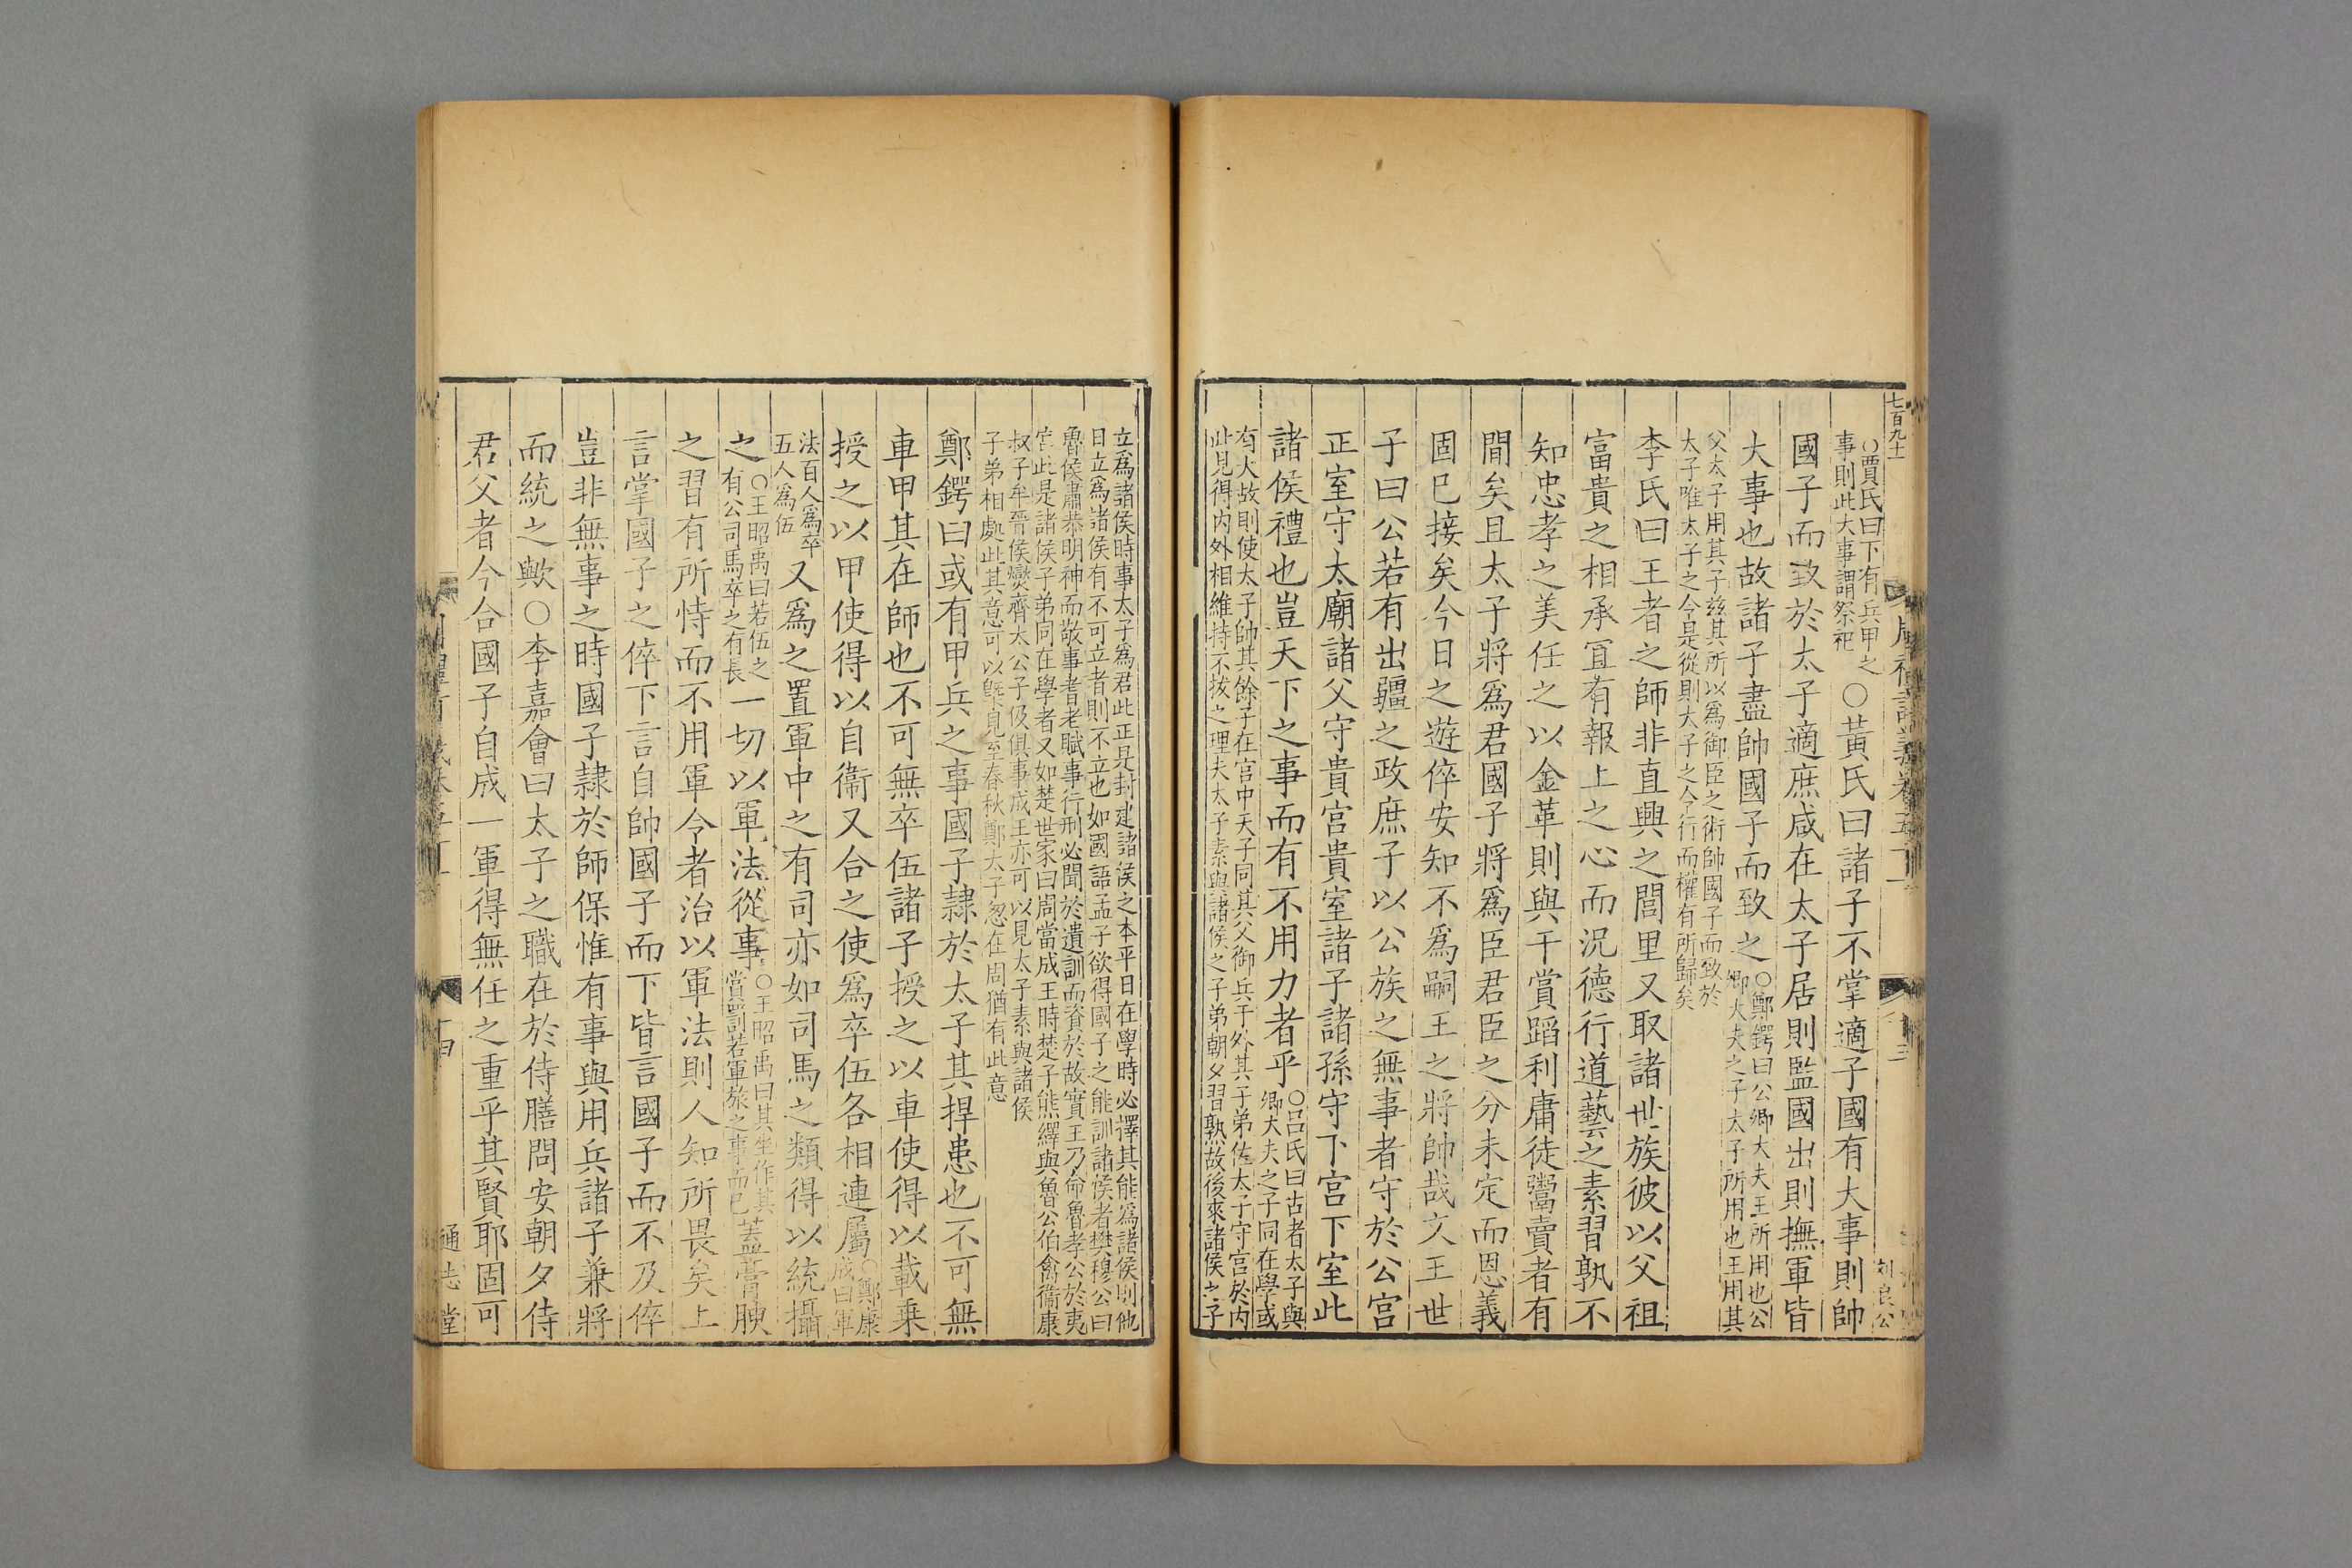 七百九十
○賈氏曰下有兵甲之
事則此大事謂祭祀
○黃氏曰諸子不掌適子國有大事則帥
國子而致於太子適庶咸在太子居則監國出則撫軍皆
大事也故諸子盡帥國子而致之
○鄭鍔曰公卿大夫王所用也公
卿大夫之子太子所用也王用其
父太子用其子兹其所以為御臣之術帥國子而致於
太子唯太子之令是從則太子之令行而權有所歸矣
李氏曰王者之師非直興之閭里又取諸世族彼以父祖
富貴之相承宜有報上之心而況德行道藝之素習孰不
知忠孝之美任之以金革則與干賞蹈利庸徒鬻賣者有
間矣且太子將爲君國子將爲臣君臣之分未定而恩義
固已接矣今日之遊倅安知不爲嗣王之將帥哉文王世
子曰公若有出疆之政庶子以公族之無事者守於公宮
正室守太廟諸父守貴宮貴室諸子諸孫守下宮下室此
諸侯禮也豈天下之事而有不用力者乎
○呂氏曰古者太子與
卿大夫之子同在學或
有大故則使太子帥其餘子在宮中天子同其父御兵于外其子弟佐太子守宮於内
此見得内外相維持不拔之理夫太子素與諸侯之子弟朝夕習熟故後來諸侯之子
刘良公
立爲諸侯時事太子爲君此正是封建諸侯之本平日在學時必擇其能爲諸侯則他
日立為諸侯有不可立者則不立也如國語孟子欲得國子之能訓諸侯者樊穆公曰
魯侯肅恭明神而敬事耆老賦事行刑必聞於遺訓而資於故實王乃命魯孝公於夷
宫此是諸侯子弟同在學者又如楚世家曰周當成王時楚子熊繹與魯公伯禽衞康
叔子牟晉侯燮齊太公子伋俱事成王亦可以見太子素與諸侯
子弟相處此其意可以槩見至春秋鄭太子忽在周猶有此意
鄭鍔曰或有甲兵之事國子隸於太子其捍患也不可無
車甲其在師也不可無卒伍諸子授之以車使得以載乗
授之以甲使得以自衞又合之使爲卒伍各相連屬
○鄭康
成曰軍
法百人爲卒
五人爲伍
又爲之置軍中之有司亦如司馬之類得以統攝
之
○王昭禹曰若伍之
有公司馬卒之有長
一切以軍法從事
○王昭禹曰其坐作其
賞罰若軍旅之事而已
葢膏腴
之習有所恃而不用軍令者治以軍法則人知所畏矣上
言掌國子之倅下言自帥國子而下皆言國子而不及倅
豈非無事之時國子隸於師保惟有事與用兵諸子兼將
而統之歟○李嘉會曰太子之職在於侍膳問安朝夕侍
君父者今合國子自成一軍得無任之重乎其賢耶固可
通志堂